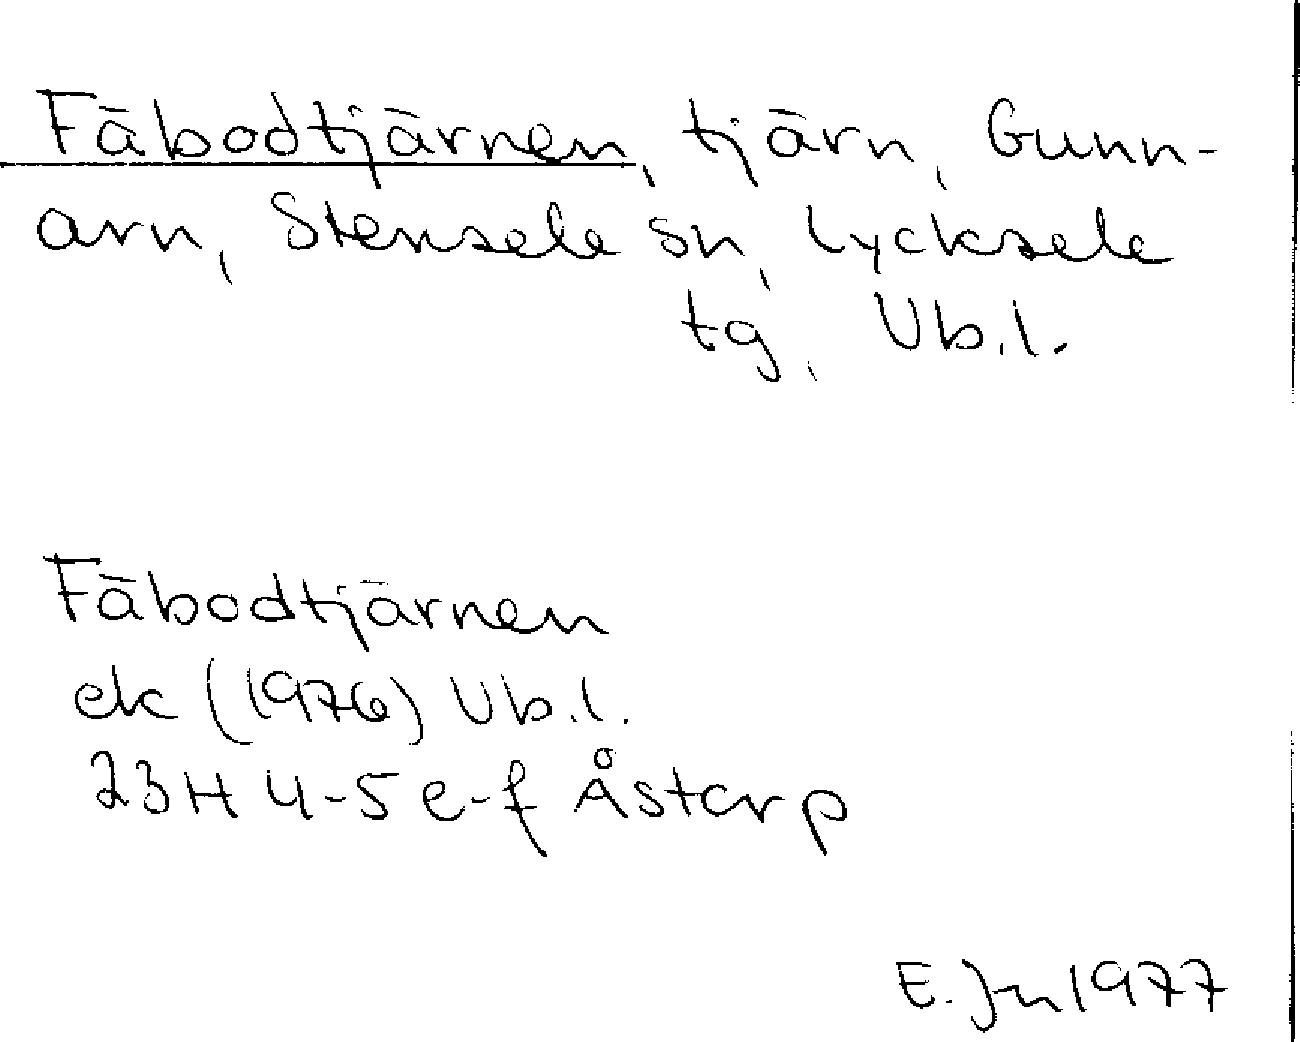 Fäbodtjärnen, tjärn, Gunn-
arn, Stensele sn, Lycksele
tg, Vb.l.
Fäbodtjärnen
ek (1976) Vb.l.
23H 4-5 e-f Åstarp
E. Jn 1977